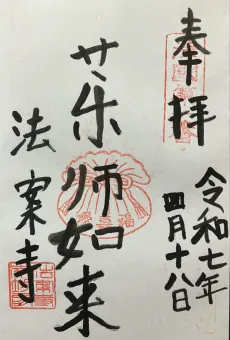 奉拝
令和七年
四月十八日
薬师如来
法案寺